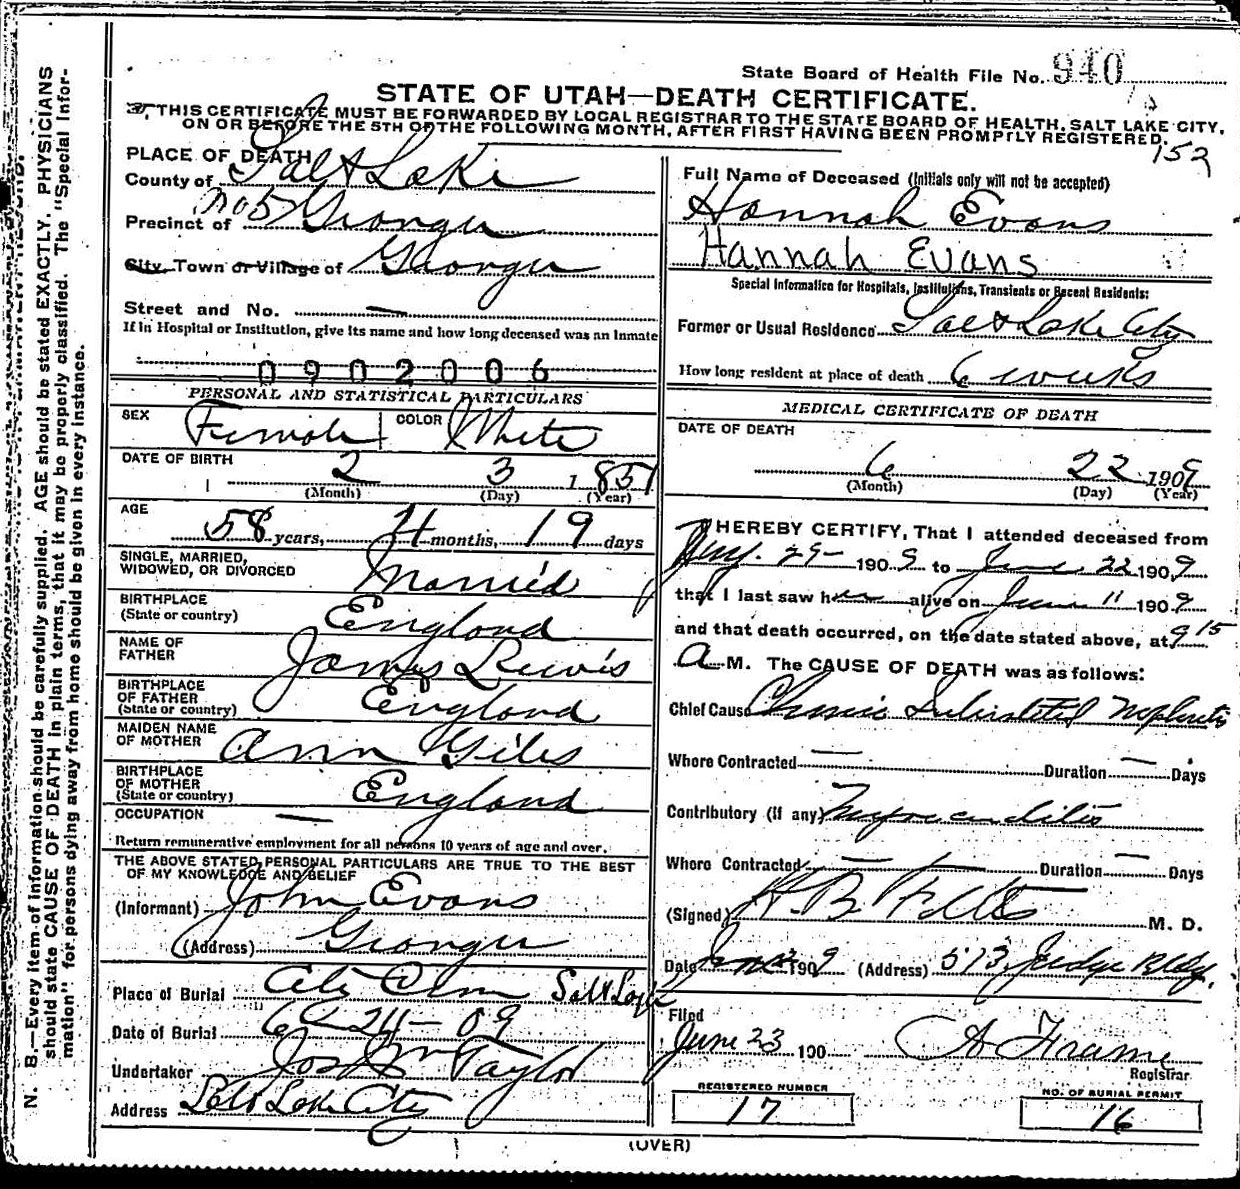 State Board of Health File No. 940
STATE OF UTAH—DEATH CERTIFICATE.
THIS CERTIFICATE MUST BE FORWARDED BY LOCAL REGISTRAR TO THE STATE BOARD OF HEALTH, SALT LAKE CITY,
ON OR BEFORE THE 5TH OF THE FOLLOWING MONTH, AFTER FIRST HAVING BEEN PROMPTLY REGISTERED.
152
PLACE OF DEATH
County of Salt Lake
Precinct of No 5 Granger
City, Town or Village of Granger
Street and No. —
If in Hospital or Institution, give its name and how long deceased was an Inmate
0902006
PERSONAL AND STATISTICAL PARTICULARS
SEX Female COLOR White
DATE OF BIRTH 2 3 1851
(Month) (Day) (Year)
AGE 58 years, 4 months, 19 days
SINGLE, MARRIED,
WIDOWED, OR DIVORCED Married
BIRTHPLACE
(State or country) England
NAME OF
FATHER James Lewis
BIRTHPLACE
OF FATHER
(State or country) England
MAIDEN NAME
OF MOTHER Ann Giles
BIRTHPLACE
OF MOTHER
(State or country) England
OCCUPATION —
Return remunerative employment for all persons 10 years of age and over.
THE ABOVE STATED PERSONAL PARTICULARS ARE TRUE TO THE BEST
OF MY KNOWLEDGE AND BELIEF
(Informant) John Evans
(Address) Granger
Place of Burial City Cem Salt Lake
Date of Burial 6-24-09
Undertaker Jos Wm Taylor
Address Salt Lake City
Full Name of Deceased (Initials only will not be accepted)
Hannah Evans
Hannah Evans
Special Information for Hospitals, Institutions, Transients or Recent Residents:
Former or Usual Residence Salt Lake City
How long resident at place of death 6 weeks
MEDICAL CERTIFICATE OF DEATH
DATE OF DEATH
6 22 1909
(Month) (Day) (Year)
I HEREBY CERTIFY, That I attended deceased from
29 1909 to June 22 1909
that I last saw her alive on June 11 1909
and that death occurred, on the date stated above, at 9 15
A M. The CAUSE OF DEATH was as follows:
Chief Cause Chronic Interstitial Nephritis
Where Contracted — Duration — Days
Contributory (if any) Myocarditis
Where Contracted — Duration — Days
(Signed) H. B. Felts M. D.
Date 1909 (Address) 573 Judge Bldg.
Filed
June 23 190 A Frame
Registrar
REGISTERED NUMBER
17
NO. OF BURIAL PERMIT
16
(OVER)
N. B.—Every item of information should be carefully supplied. AGE should be stated EXACTLY. PHYSICIANS
should state CAUSE OF DEATH in plain terms, that it may be properly classified. The "Special Infor-
mation" for persons dying away from home should be given in every instance.